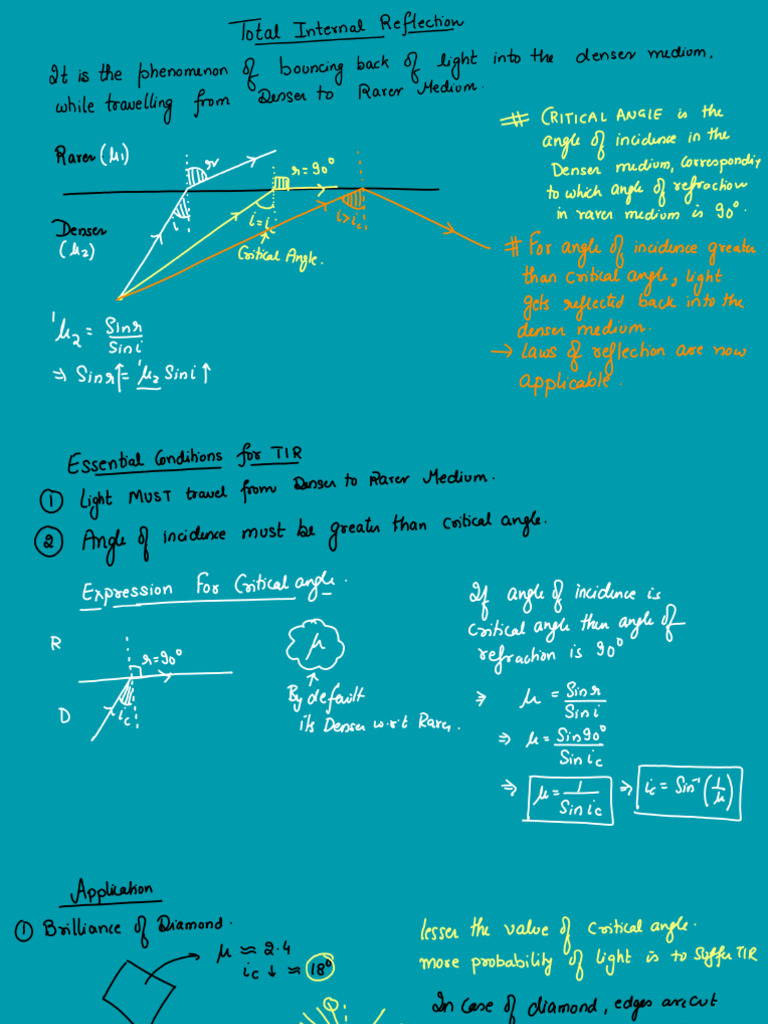 Total Internal Reflection
It is the phenomenon of bouncing back of light into the denser medium,
while travelling from Denser to Rarer Medium.
Rarer (μ1)
r
r=90°
Denser
(μ2)
i
i=ic
i>ic
Critical Angle.
# CRITICAL ANGLE is the
angle of incidence in the
Denser medium, correspondiy
to which angle of refraction
in rarer medium is 90°.
# For angle of incidence greater
than critical angle, light
gets reflected back into the
denser medium.
→ laws of reflection are now
applicable.
¹μ2 = Sinr/Sini
⇒ Sinr↑ = ¹μ2 Sini↑
Essential Conditions for TIR
① Light MUST travel from Denser to Rarer Medium.
② Angle of incidence must be greater than critical angle.
Expression For Critical angle.
R
r=90°
D
ic
μ
By default
its Denser w.r.t Rarer.
If angle of incidence is
critical angle then angle of
refraction is 90°
⇒ μ = Sinr/Sini
⇒ μ = Sin90°/Sin ic
⇒ μ = 1/Sin ic ⇒ ic = Sin⁻¹(1/μ)
Application
① Brilliance of Diamond.
μ ≈ 2.4
ic ↓ ≈ 18°
lesser the value of critical angle.
more probability of light is to Suffer TIR
In case of diamond, edges are cut